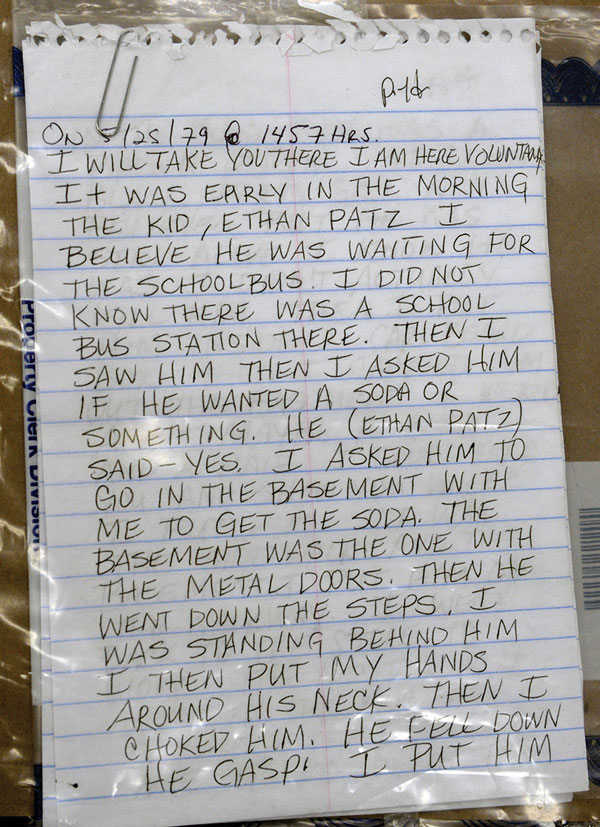 ON 5/25/79 @ 1457 HRS.
I WILL TAKE YOU THERE I AM HERE
IT WAS EARLY IN THE MORNING
THE KID, ETHAN PATZ I
BELIEVE HE WAS WAITING FOR
THE SCHOOLBUS. I DID NOT
KNOW THERE WAS A SCHOOL
BUS STATION THERE. THEN I
SAW HIM THEN I ASKED HIM
IF HE WANTED A SODA OR
SOMETHING. HE (ETHAN PATZ)
SAID - YES. I ASKED HIM TO
GO IN THE BASEMENT WITH
ME TO GET THE SODA. THE
BASEMENT WAS THE ONE WITH
THE METAL DOORS. THEN HE
WENT DOWN THE STEPS. I
WAS STANDING BEHIND HIM
I THEN PUT MY HANDS
AROUND HIS NECK. THEN I
CHOKED HIM. HE FELL DOWN
HE GASP. I PUT HIM
Property Clerk Division